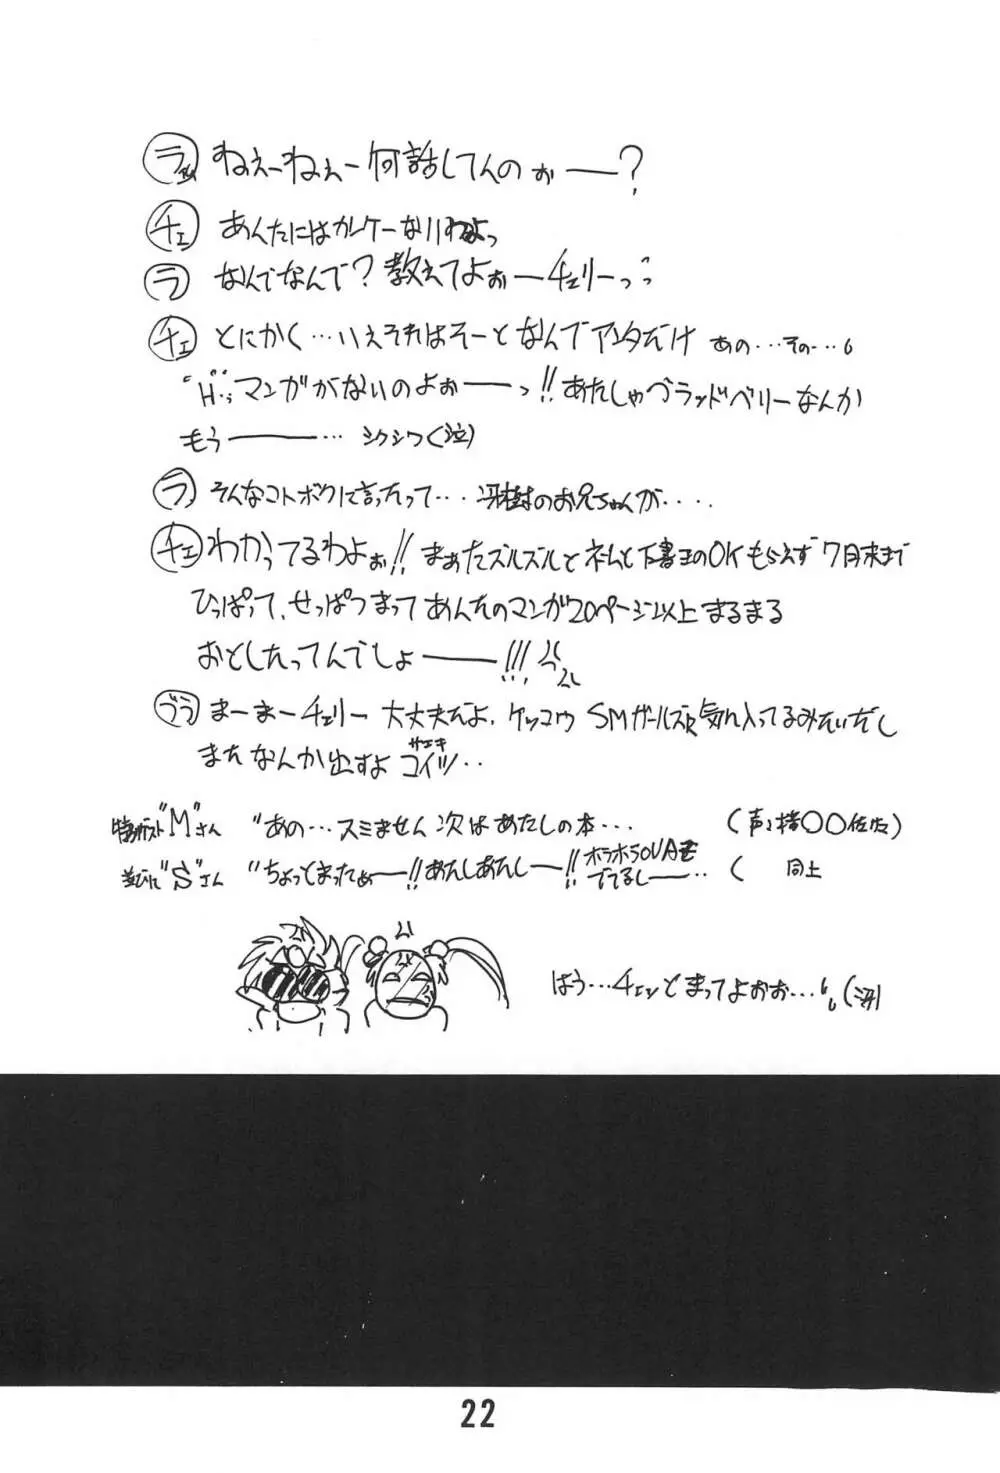 ラ ねえーねえー何話してんのぉー？
チェ あんたにはカンケーないわよっ
ラ なんでなんで？教えてよぉーチェリーっっ
チェ とにかく…いえそれはそーとなんでアンタだけ あの…その…
"H"マンガがないのよぉーっ!!あたしゃブラッドベリーなんか
もうー… シクシク(泣)
ラ そんなコトボクに言ったって…冴樹のお兄ちゃんが‥‥
チェ わかってるわよぉ!!まぁたズルズルとネームと下書きのOKもらえず7月末まで
ひっぱって、せっぱつまってあんたのマンガ20ページ以上まるまる
おとしたってんでしょー!!!
ブラ まーまーチェリー 大丈夫だよ、ケッコウSMガールズ気に入ってるみたいだし
またなんか出すよコイツ‥
サエキ
特別ゲスト"M"さん "あの…スミません次はあたしの本… (声;椎〇〇佐知)
並びに"S"さん "ちょっとまったぁー!!あたしあたしー!!ホラホラOVAまで
でてるしー‥ ( 同上
はう…チョッとまってよぉお…(冴)
22